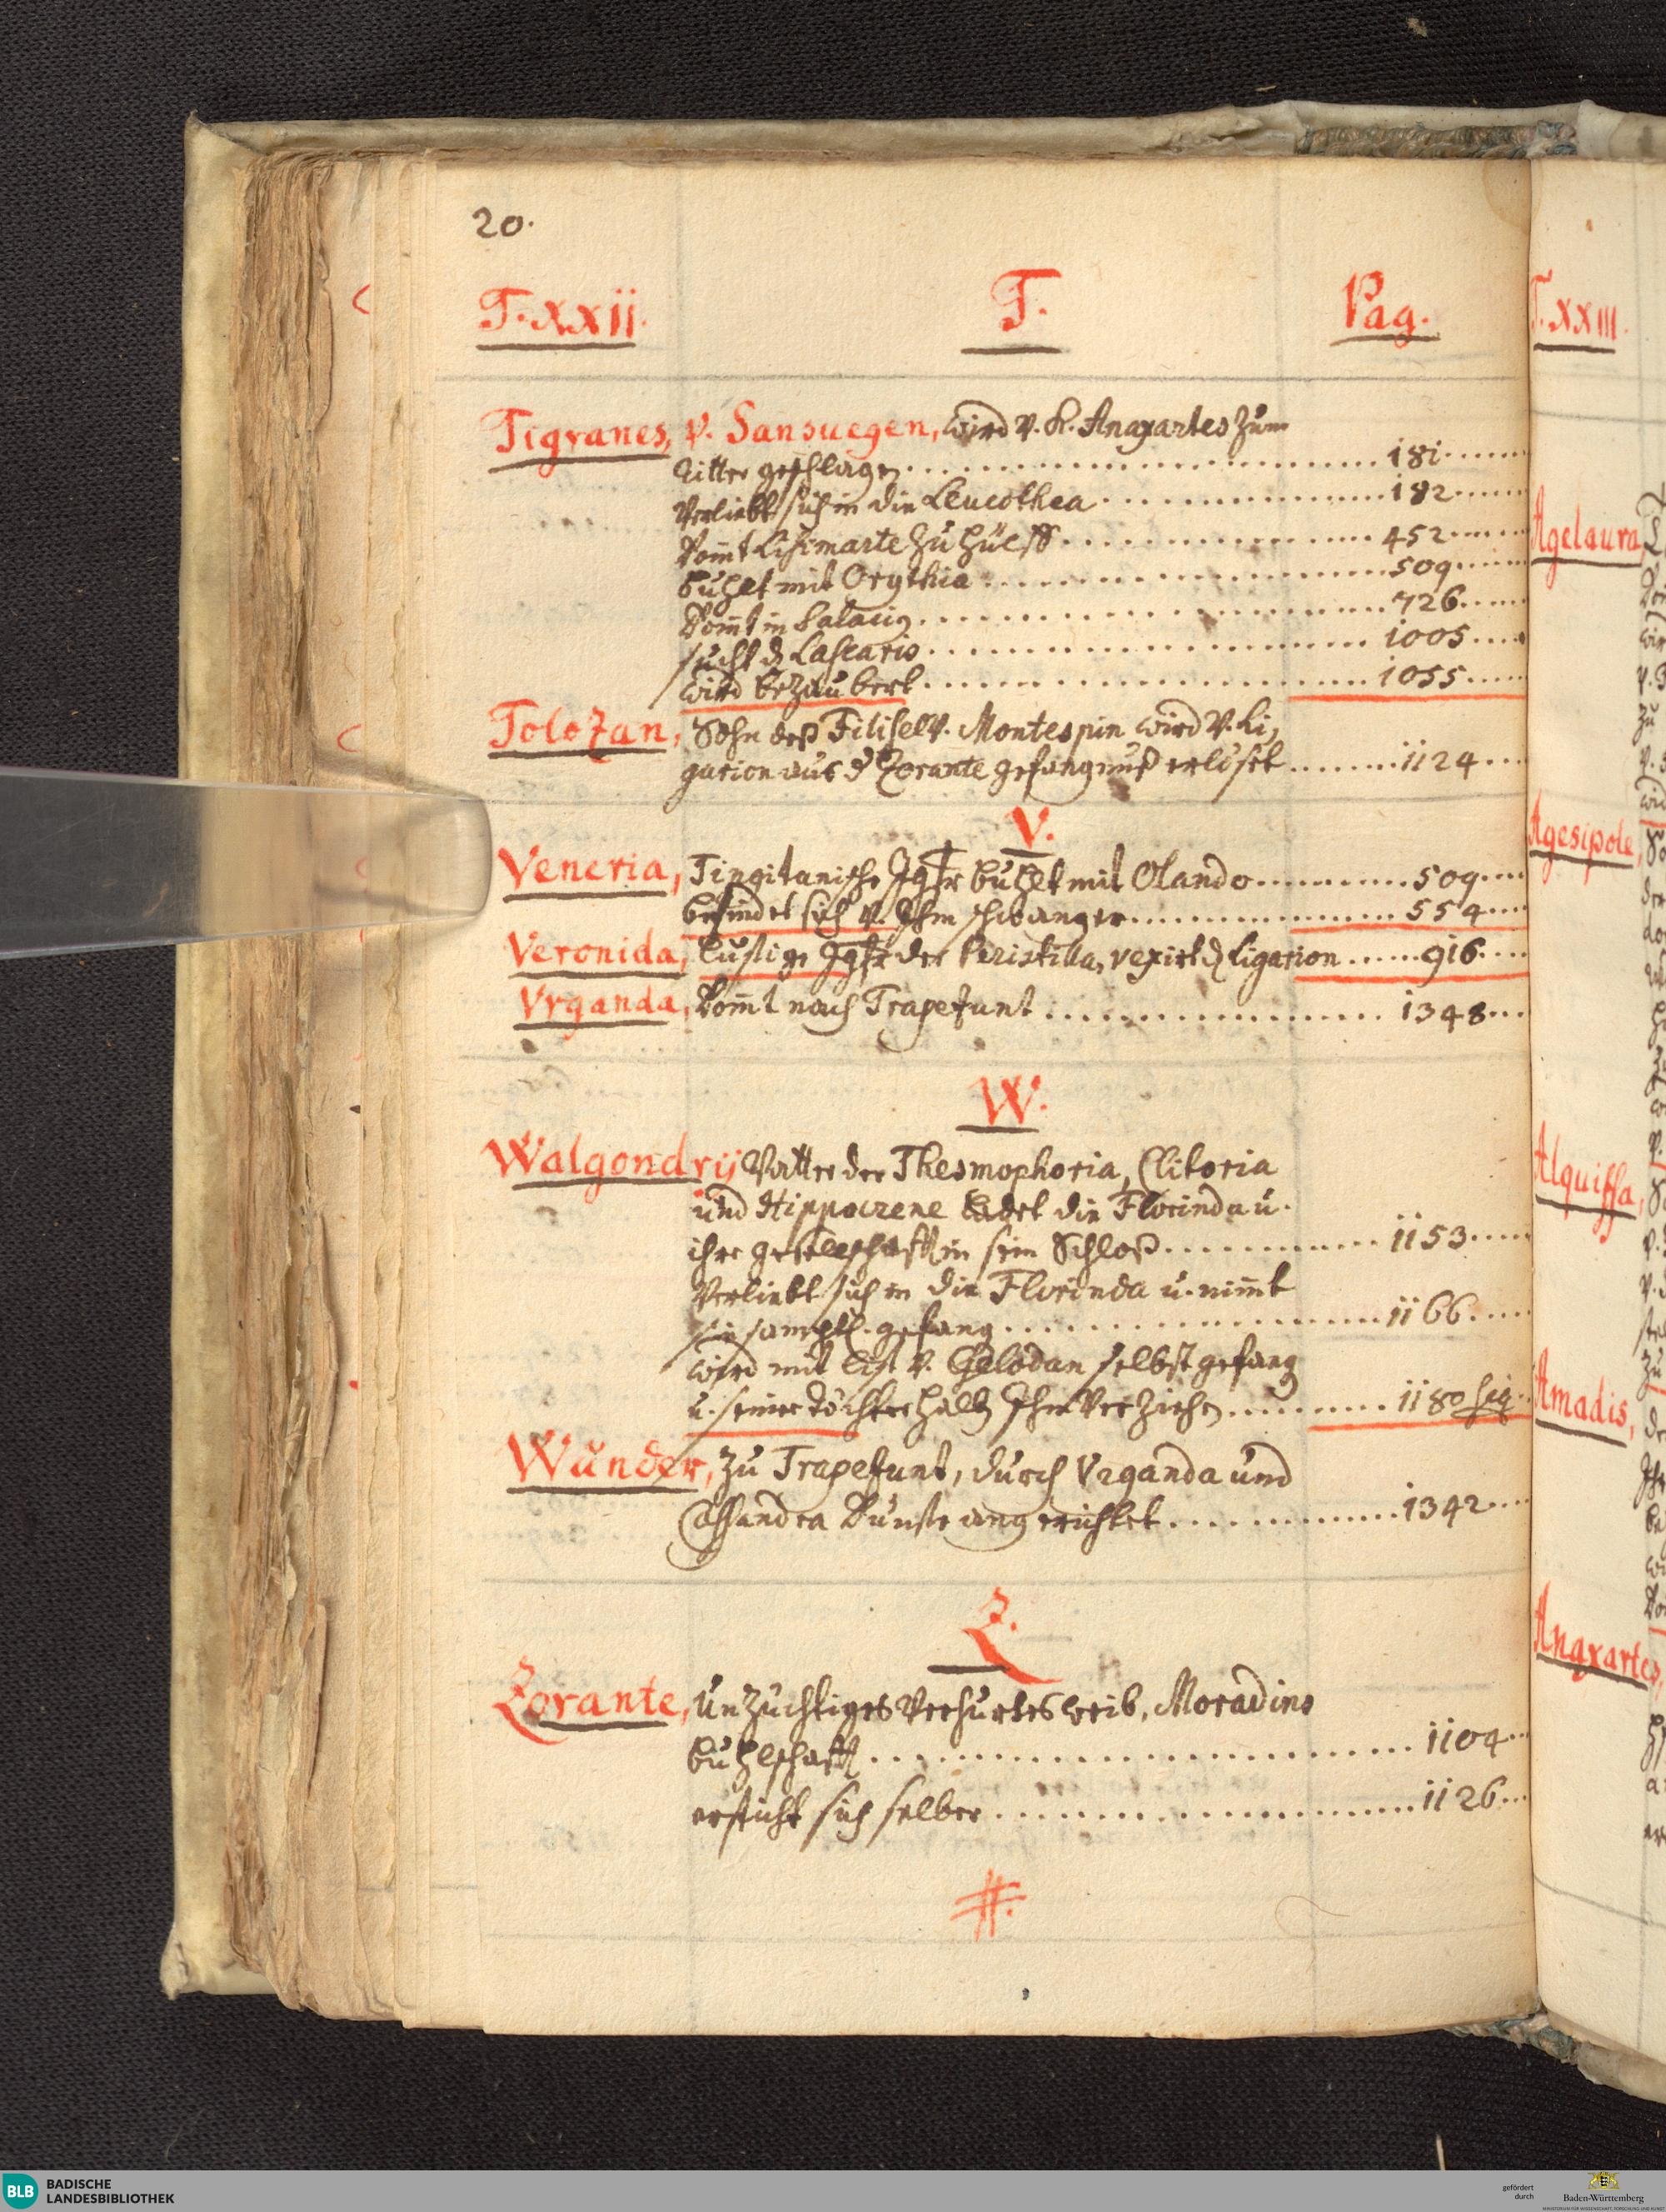 20.
T. XXii. T. Pag.
Tigranes, v. Sansuegen, wird v. K. Anaxartes zum
Ritter geschlagen 181
Verliebt sich in die Leucothea 182
Komt Lisimarte zu Hülff 452
buhlet mit Orythia 509
Komt in Palacin 726
sucht d Lascaris 1005
wird bezaubert 1055
Tolozan, Sohn deß Filisel v. Montespin wird v. Li,
garion aus d Zorante gefängnuß erlöset 1124
V.
Veneria, Tingitanische Jgfr buhlet mit Olando 509
befindet sich v. Ihm schwanger 554
Veronida, lustige Jgfr der Peristilla, vexirt d Ligarion 916
Vrganda, Komt nach Trapezunt 1348
W.
Walgondrij, Vatter der Thesmophoria, Clitoria
und Hippocrene ladet die Florinda u.
ihre gesellschafft in sein Schloß 1153
Verliebt sich in die Florinda u. nimt
sie samptl. gefang 1166
wird mit list v. Gelodan selbst gefang
u. seiner töchter halb Ihm verziehen 1180 sq.
Wunder, zu Trapezunt, durch Vrganda und
Cassandra Kunste angerichtet 1342
Z.
Zorante, unzüchtiges verhurtes weib, Moradins
buhlschafft 1104
ersticht sich selber 1126
#.
T. XXIII.
Agelaura,
Agesipole,
Alquiffa,
Amadis,
Anaxartes,
BLB BADISCHE
LANDESBIBLIOTHEK
gefördert
durch
Baden-Württemberg
MINISTERIUM FÜR WISSENSCHAFT, FORSCHUNG UND KUNST